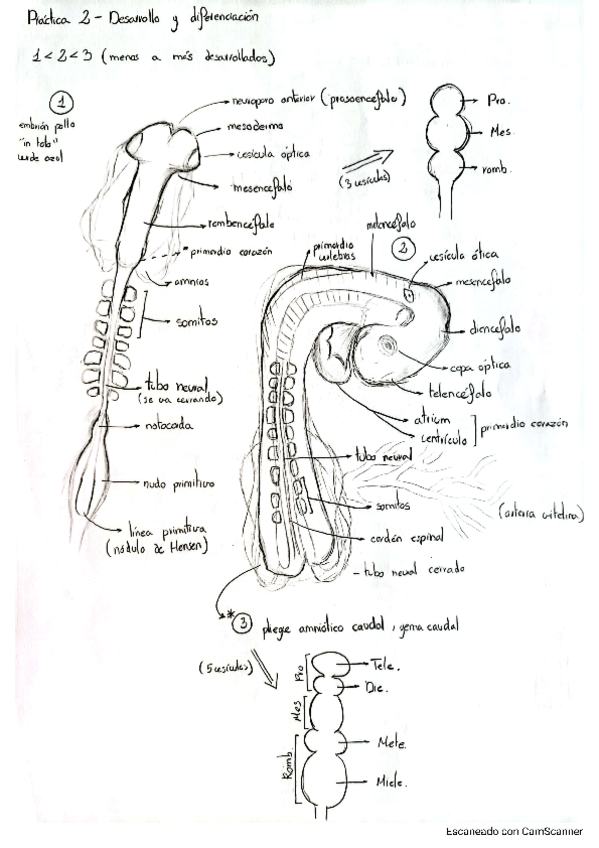 Práctica 2 - Desarrollo y diferenciación
1 < 2 < 3 (menos a más desarrollados)
1
embrión pollo
"in toto"
neuroporo anterior (prosoencéfalo)
mesodermo
vesícula óptica
mesencéfalo
rombencéfalo
*primordio corazón
amnios
somitos
tubo neural
(se va cerrando)
notocorda
nudo primitivo
línea primitiva
(nódulo de Hensen)
(3 vesículas)
Pro.
Mes.
romb.
2
primordio
mielencéfalo
vesícula ótica
mesencéfalo
diencéfalo
copa óptica
telencéfalo
atrium
ventrículo
primordio corazón
tubo neural
somitos
(arteria vitelina)
cordón espinal
- tubo neural cerrado
*3 pliegue amniótico caudal, yema caudal
(5 vesículas)
Pro
Mes
Romb.
Tele.
Die.
Mete.
Miele.
Escaneado con CamScanner